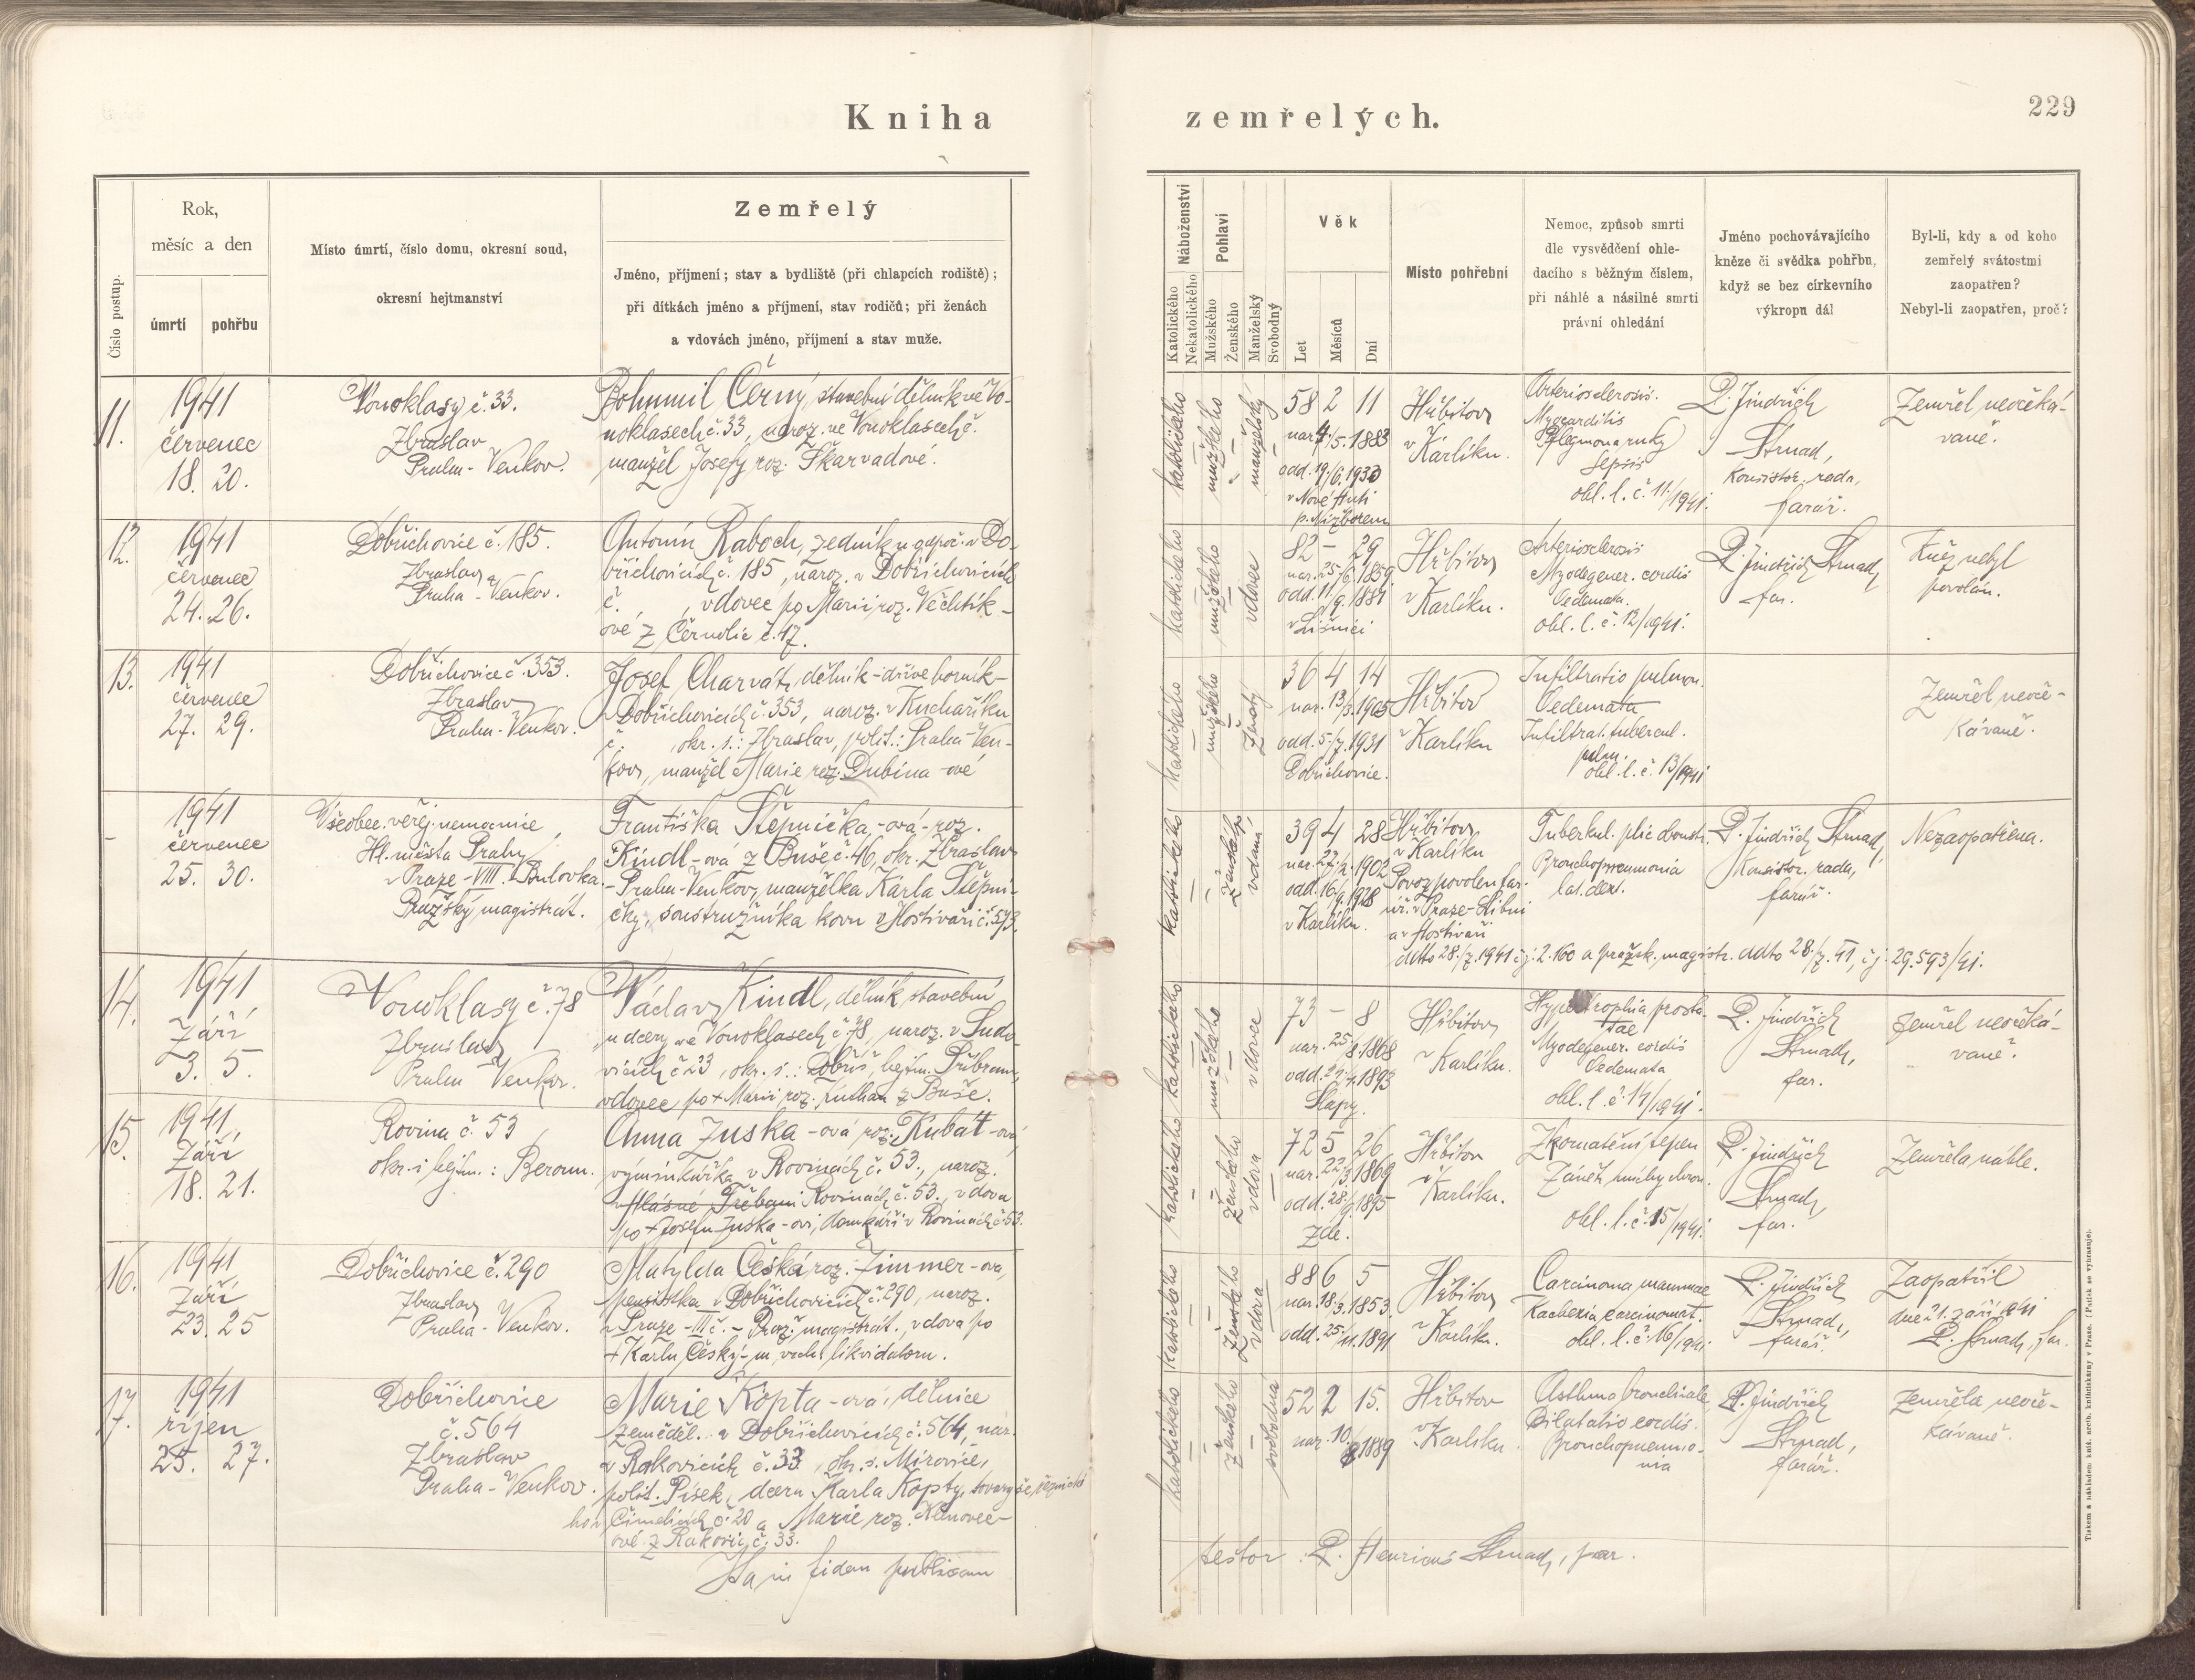 Kniha
zemřelých.
229
Číslo postup.
Rok,
měsíc a den
úmrtí
pohřbu
Místo úmrtí, číslo domu, okresní soud,
okresní hejtmanství
Zemřelý
Jméno, příjmení; stav a bydliště (při chlapcích rodiště);
při dítkách jméno a příjmení, stav rodičů; při ženách
a vdovách jméno, příjmení a stav muže.
Náboženství
Katolického
Nekatolického
Pohlaví
Mužského
Ženského
Manželský
Svobodný
Věk
Let
Měsíců
Dní
Místo pohřební
Nemoc, způsob smrti
dle vysvědčení ohle-
dacího s běžným číslem,
při náhlé a násilné smrti
právní ohledání
Jméno pochovávajícího
kněze či svědka pohřbu,
když se bez církevního
výkropu dál
Byl-li, kdy a od koho
zemřelý svátostmi
zaopatřen?
Nebyl-li zaopatřen, proč?
11.
1941
červenec
18. 20.
Vonoklasy č. 33.
Zbraslav
Praha-Venkov.
Bohumil Černý, stavební dělník ve Vo-
noklasech č. 33, naroz. ve Vonoklasech č.
manžel Josefy roz. Škarvadové.
katolického
mužského
manželský
58 2 11
nar. 4./5. 1883
odd. 19./6. 1933
v Nové Huti
p. Nižborem
Hřbitov
v Karlíku.
Arteriosclerosis.
Myocarditis
Phlegmona ruky
Sepsis
ohl. l. č. 11./1941.
P. Jindřich
Strnad,
Konsistor. rada,
farář.
Zemřel neočeká-
vaně.
12.
1941
červenec
24. 26.
Dobřichovice č. 185.
Zbraslav
Praha-Venkov.
Antonín Raboch, zedník n. odpoč. v Do-
břichovicích č. 185, naroz. v Dobřichovicích
č. , vdovec po Marii roz. Vechtík-
ové z Černolic č. 17.
katolického
mužského
vdovec
82 - 29
nar. 25./6. 1859.
odd. 11./9. 1881
v Líšnici
Hřbitov
v Karlíku.
Arteriosclerosis
Myodegener. cordis
Oedemata.
ohl. l. č. 12/1941.
P. Jindřich Strnad,
far.
Kněz nebyl
povolán.
13.
1941
červenec
27. 29.
Dobřichovice č. 353.
Zbraslav
Praha-Venkov.
Josef Charvát, dělník-dříve horník-
v Dobřichovicích č. 353, naroz. v Kuchaříku
č. okr. s.: Zbraslav, polit.: Praha-Ven-
kov, manžel Marie roz. Dubina-ové
katolického
mužského
ženatý
36 4 14
nar. 13/3. 1905
odd. 5./7. 1931
Dobřichovice.
Hřbitov
v Karlíku
Infiltratio pulmon.
Oedemata
Infiltrat. tubercul.
pulm.
ohl. l. č. 13/1941
Zemřel neoče-
kávaně.
-
1941
červenec
25. 30.
Všeobec. veřej. nemocnice
Hl. města Prahy
v Praze-VIII. Bulovka.
Pražský magistrát.
Františka Štěpnička-ová-roz.
Kindl-ová z Buše č. 46, okr. Zbraslav
-Praha-Venkov, manželka Karla Štěpni-
čky, soustružníka kovu v Hostivaři č. 573.
katolického
ženského
vdaná
39 4 28
nar. 27./2. 1902
odd. 16./9. 1928
v Karlíku.
Hřbitov
v Karlíku
Povoz povolen far.
úř. v Praze-Libni
a v Hostivaři
ddto 28./7. 1941 čj. 2.160 a pražsk. magistr. ddto 28./7. 41, čj. 29.593/41.
Tuberkul. plic oboustr.
Bronchopneumonia
lat. dext.
P. Jindřich Strnad,
Konsistor. rada,
farář.
Nezaopatřena.
14.
1941
Září
3. 5.
Vonoklasy č. 78
Zbraslav
Praha Venkov.
Václav Kindl, dělník stavební
u dcery ve Vonoklasech č. 78, naroz. v Sudo-
vicích č 23, okr. s.: Dobříš, hejtm. Příbram,
vdovec po + Marii roz. Kuthan z Buše.
katolického
mužského
vdovce
73 - 8
nar. 25/8. 1868
odd. 1893
Slapy.
Hřbitov
v Karlíku.
Hypertrophia prosta-
tae
Myodegener. cordis
Oedemata
ohl. l. č. 14/1941.
P. Jindřich
Strnad,
far.
Zemřel neočeká-
vaně.
15.
1941,
Září
18. 21.
Rovina č. 53
okr. i hejtm.: Beroun.
Anna Zuska-ová roz. Kubát-ová,
výminkářka v Rovinách č. 53., naroz.
v Hlásné Třebani Rovinách č. 53., vdova
po + Josefu Zuska-ovi, domkáři v Rovinách č 53.
katolického
ženského
vdova
72 5 26
nar. 22/3. 1869
odd. 28/9. 1895
Zde.
Hřbitov
v Karlíku.
Zkornatění tepen
Zánět míchy chron.
ohl. l. č. 15/1941.
P. Jindřich
Strnad,
far.
Zemřela náhle.
16.
1941
Září
23. 25
Dobřichovice č. 290
Zbraslav
Praha-Venkov.
Matylda Česká roz. Zimmer-ová,
pensistka v Dobřichovicích č. 290, naroz.
v Praze-III č. - Praž. magistrát., vdova po
+ Karlu Český-m, vrchl. likvidátoru.
katolického
ženského
vdova
88 6 5
nar. 18/3. 1853.
odd. 25./11. 1891
Hřbitov
v Karlíku.
Carcinoma mammae
Kachexia carcinomat.
ohl. l. č. 16/1941.
P. Jindřich
Strnad,
farář.
Zaopatřil
dne 21. září 1941
P. Strnad, far.
17.
1941
říjen
25. 27.
Dobřichovice
č. 564
Zbraslav
Praha-Venkov.
Marie Kopta-ová, dělnice
zeměděl. v Dobřichovicích č. 564, nar.
v Rakovicích č. 33, okr. s. Mirovice,
polit. Písek, dcera Karla Kopty, tovaryše řeznické
ho v Čimelicích č. 20 a Marie roz. Klanovec-
ové z Rakovic č. 33.
katolického
ženského
svobodná
52 2 15.
nar. 10./8 1889
Hřbitov
v Karlíku.
Asthma bronchiale
Dilatatio cordis.
Bronchopneumo-
nia
P. Jindřich
Strnad,
farář.
Zemřela neoče-
kávaně.
Ita in fidem publicam
testor: P. Henricus Strnad, par.
Tiskem a nákladem kníž. arcib. knihtiskárny v Praze. (Patisk se vyhrazuje).